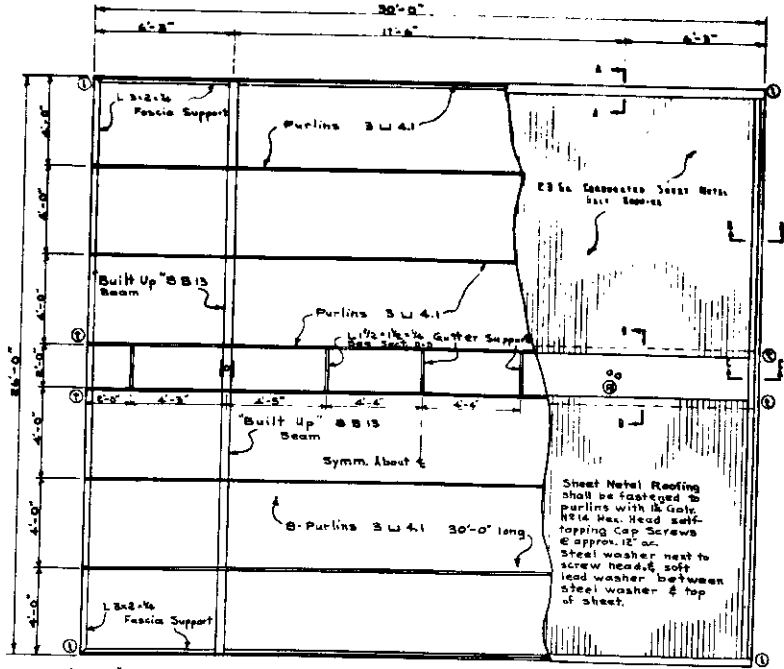 30'-0"
6'-3"
17'-6"
6'-3"
A
A
L 3×2×¼
Fascia Support
Purlins 3 ⊔ 4.1
4'-0"
4'-0"
4'-0"
2'-0"
4'-0"
4'-0"
4'-0"
26'-0"
"Built Up" 8 B 13
Beam
Purlins 3 ⊔ 4.1
L 1½×1½×¼ Gutter Support
See Sect. D-D
2'-0"
4'-3"
4'-5"
4'-4"
4'-4"
"Built Up" 8 B 13
Beam
Symm. About ℄
8-Purlins 3 ⊔ 4.1 30'-0" long
L 3×2×¼
Fascia Support
Sheet Metal Roofing
shall be fastened to
purlins with Galv.
Nº 14 Hex. Head self-
tapping Cap Screws
@ approx. 12" oc.
Steel washer next to
screw head & soft
lead washer between
steel washer & top
of sheet.